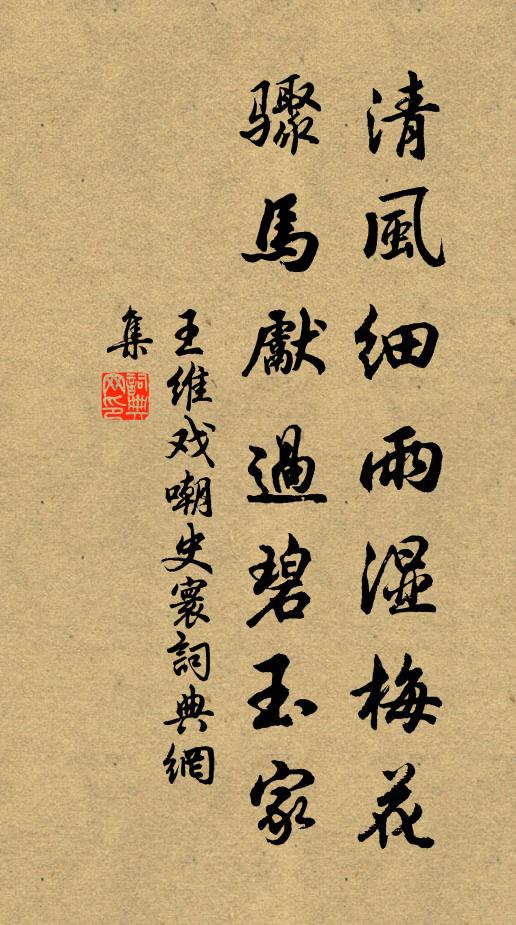 清風細雨湿梅花
驟馬獻過碧玉家
王維戏嘲史寰詞典網
集
詞典网印